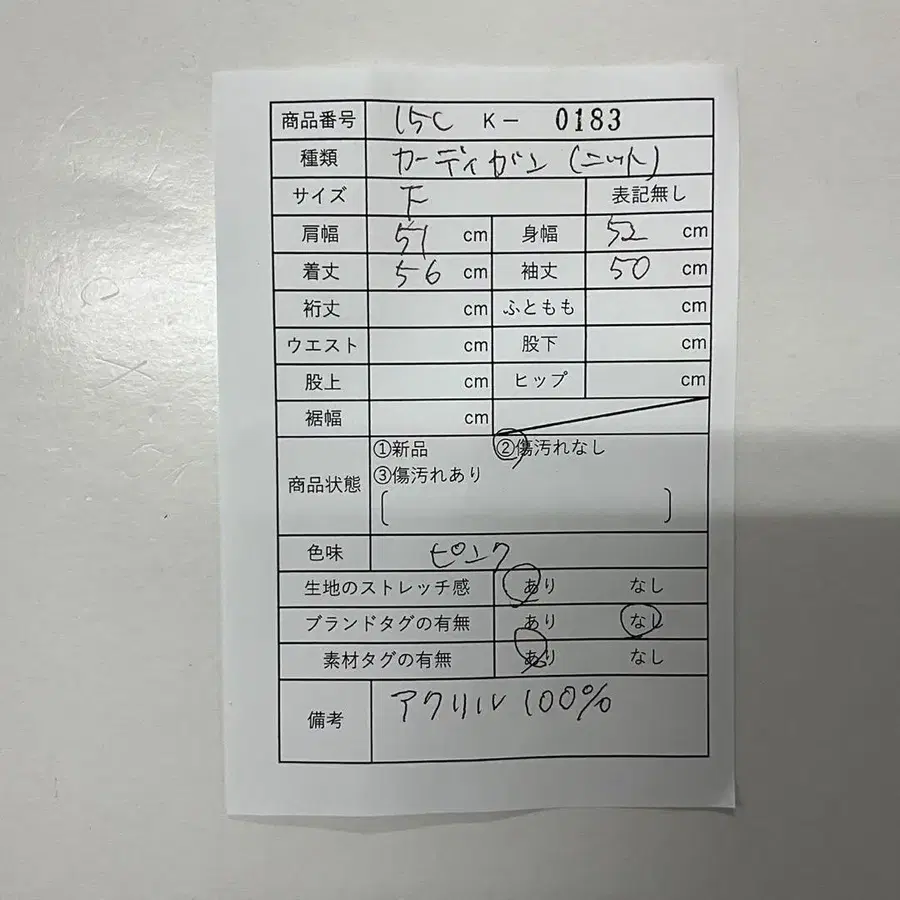 商品番号 15C K- 0183
種類 カーディガン(ニット)
サイズ F 表記無し
肩幅 51 cm 身幅 52 cm
着丈 56 cm 袖丈 50 cm
裄丈 cm ふともも cm
ウエスト cm 股下 cm
股上 cm ヒップ cm
裾幅 cm
商品状態 ①新品 ②傷汚れなし
③傷汚れあり
[ ]
色味 ピンク
生地のストレッチ感 あり なし
ブランドタグの有無 あり なし
素材タグの有無 あり なし
備考 アクリル 100%